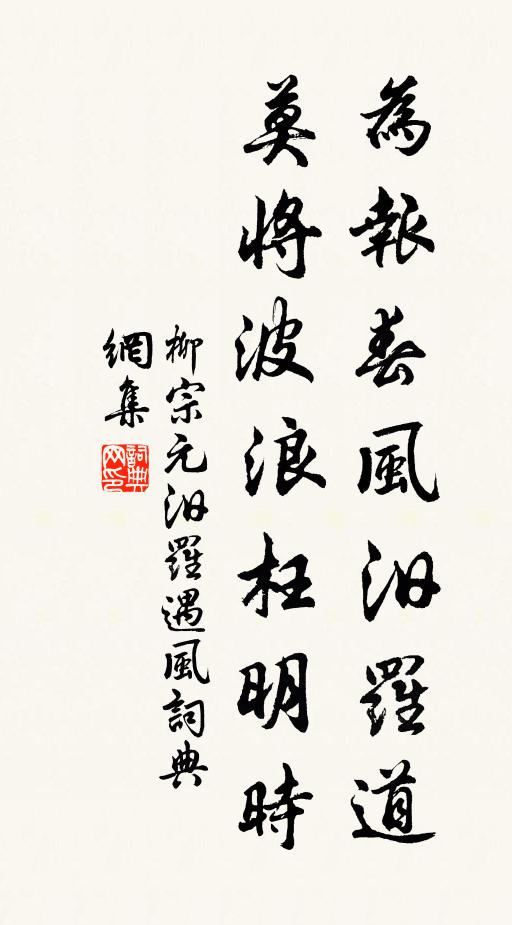 為報春風汨羅道
莫將波浪枉明時
柳宗元汨羅遇風詞典
網集
詞典
网印